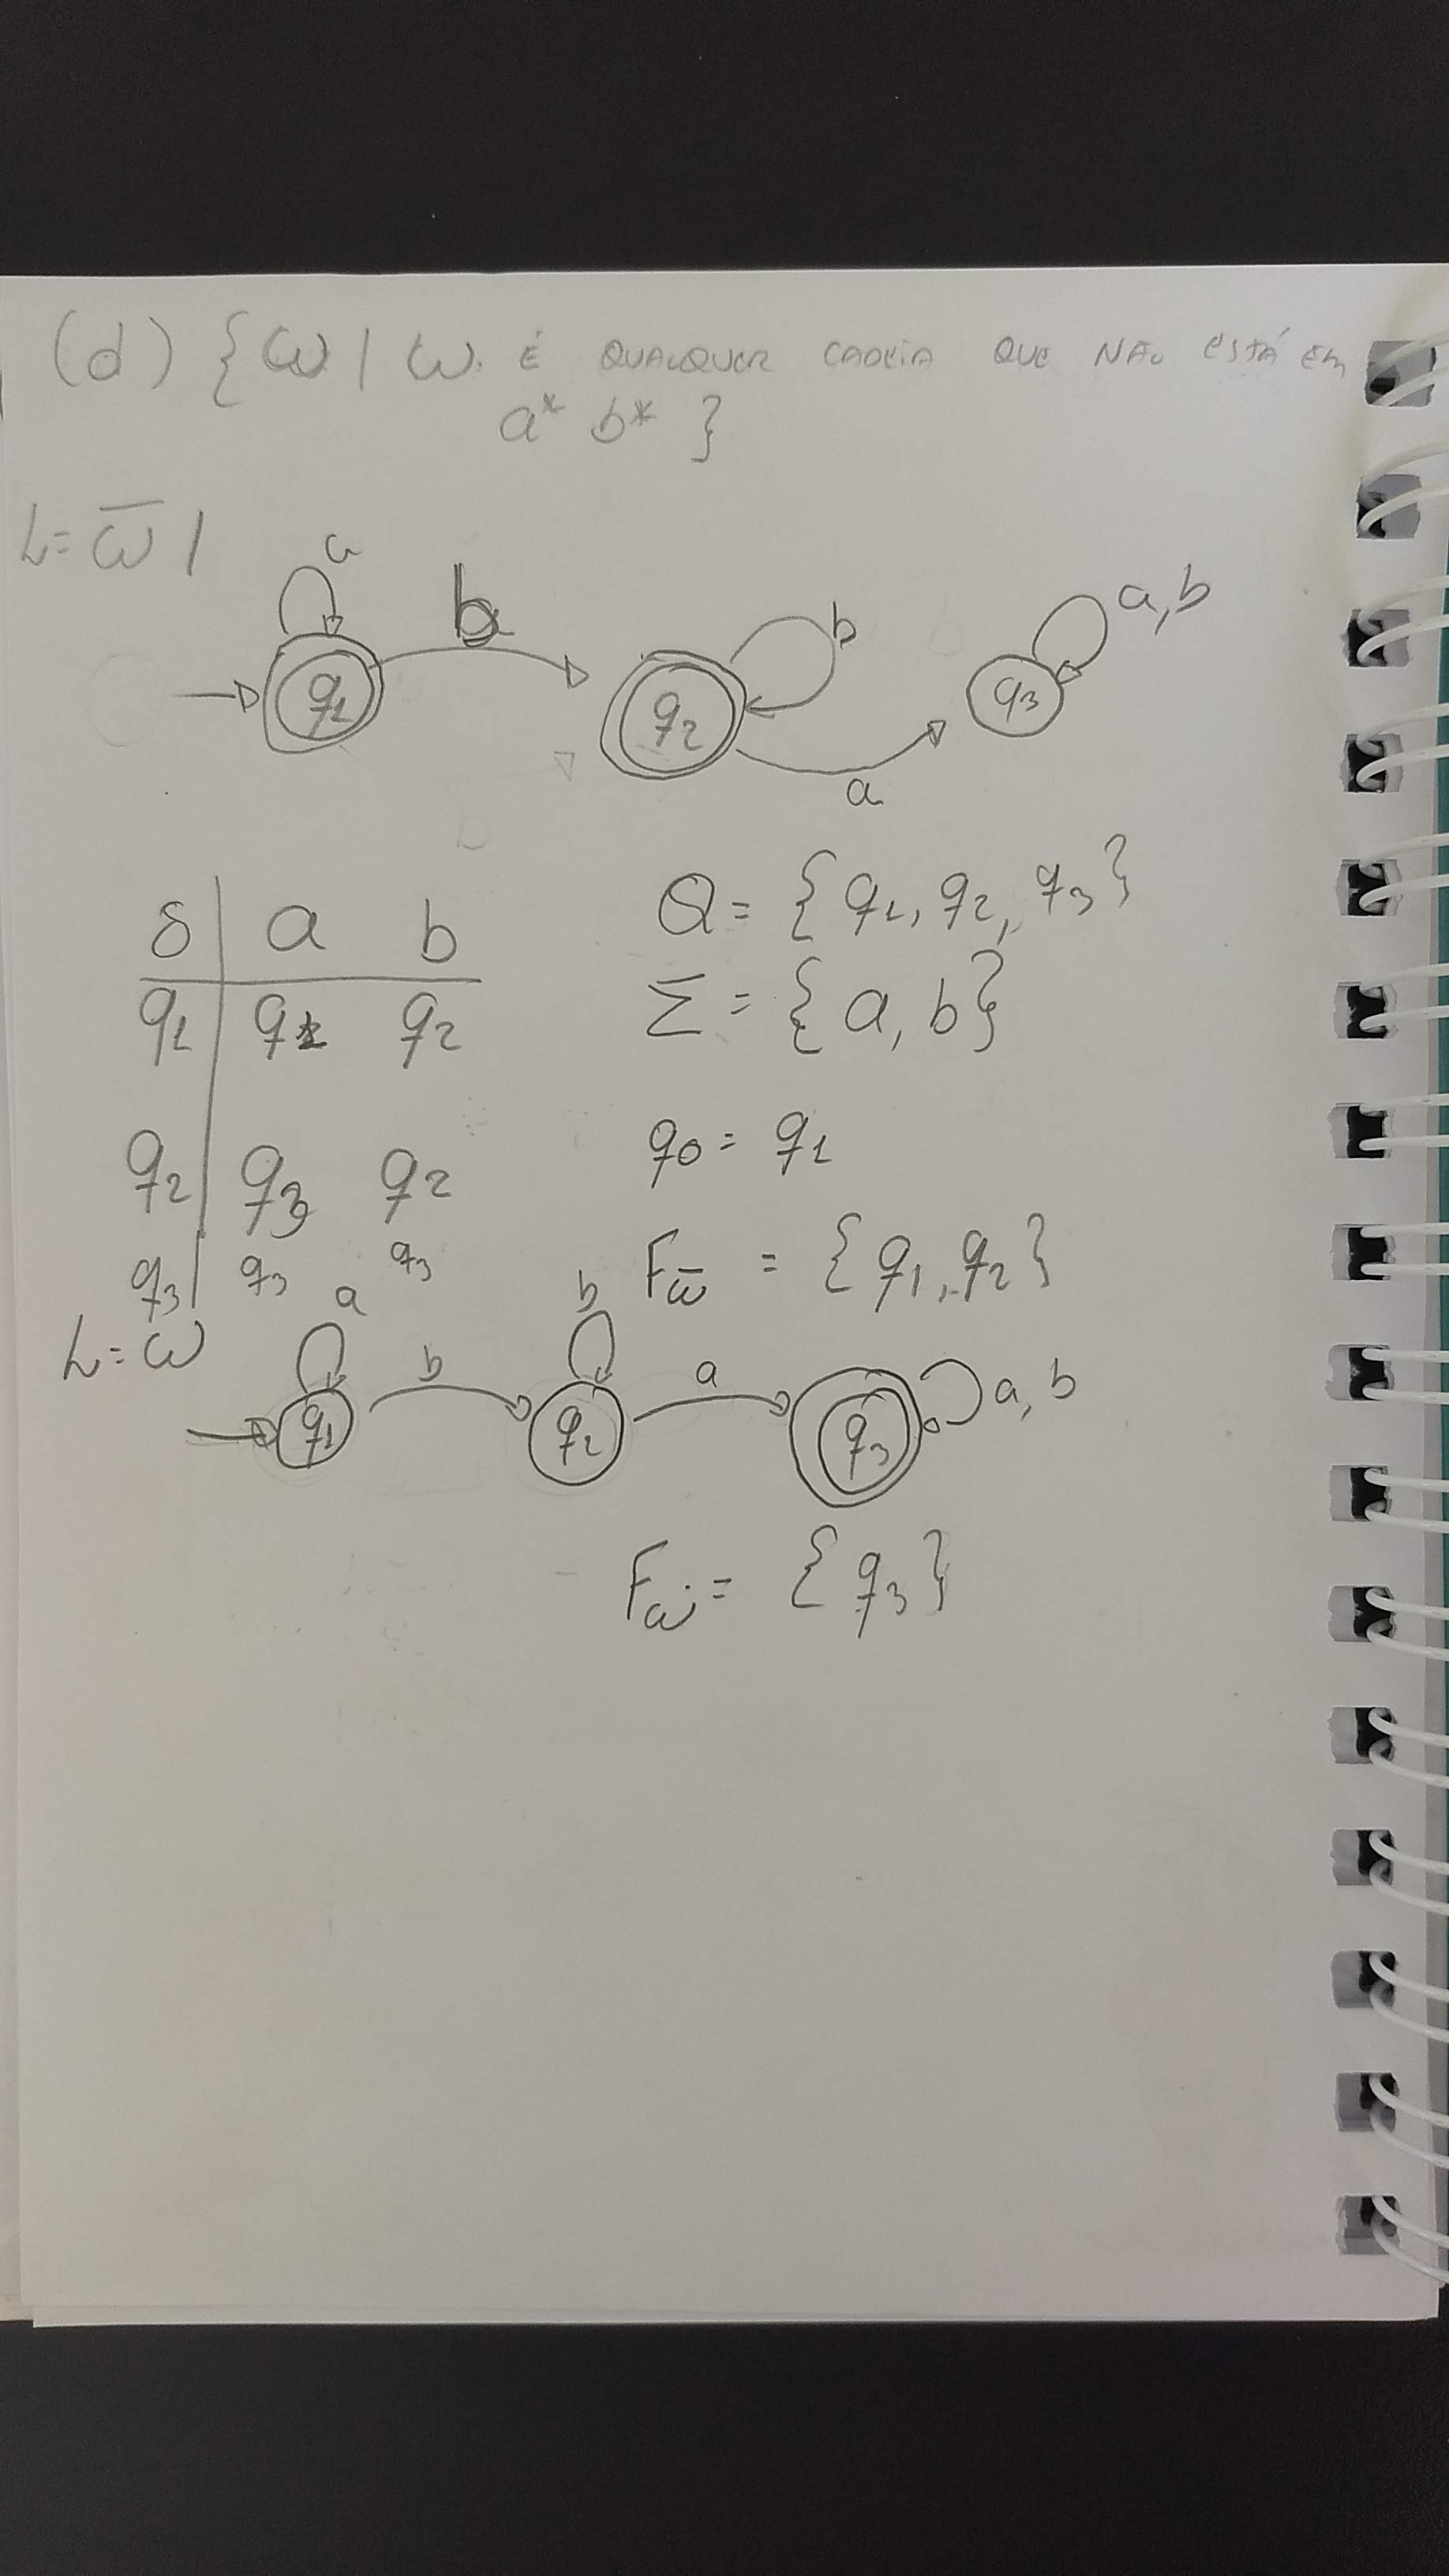 (d) {ω | ω É QUALQUER CADEIA QUE NÃO ESTÁ EM
a* b* }
L = ω̅ |
a b b a,b
q1 q2 q3
a
δ a b
q1 q1 q2
q2 q3 q2
q3 q3 q3
Q = {q1, q2, q3}
Σ = {a, b}
q0 = q1
Fω̅ = {q1, q2}
L = ω
a b b a a, b
q1 q2 q3
Fω = {q3}